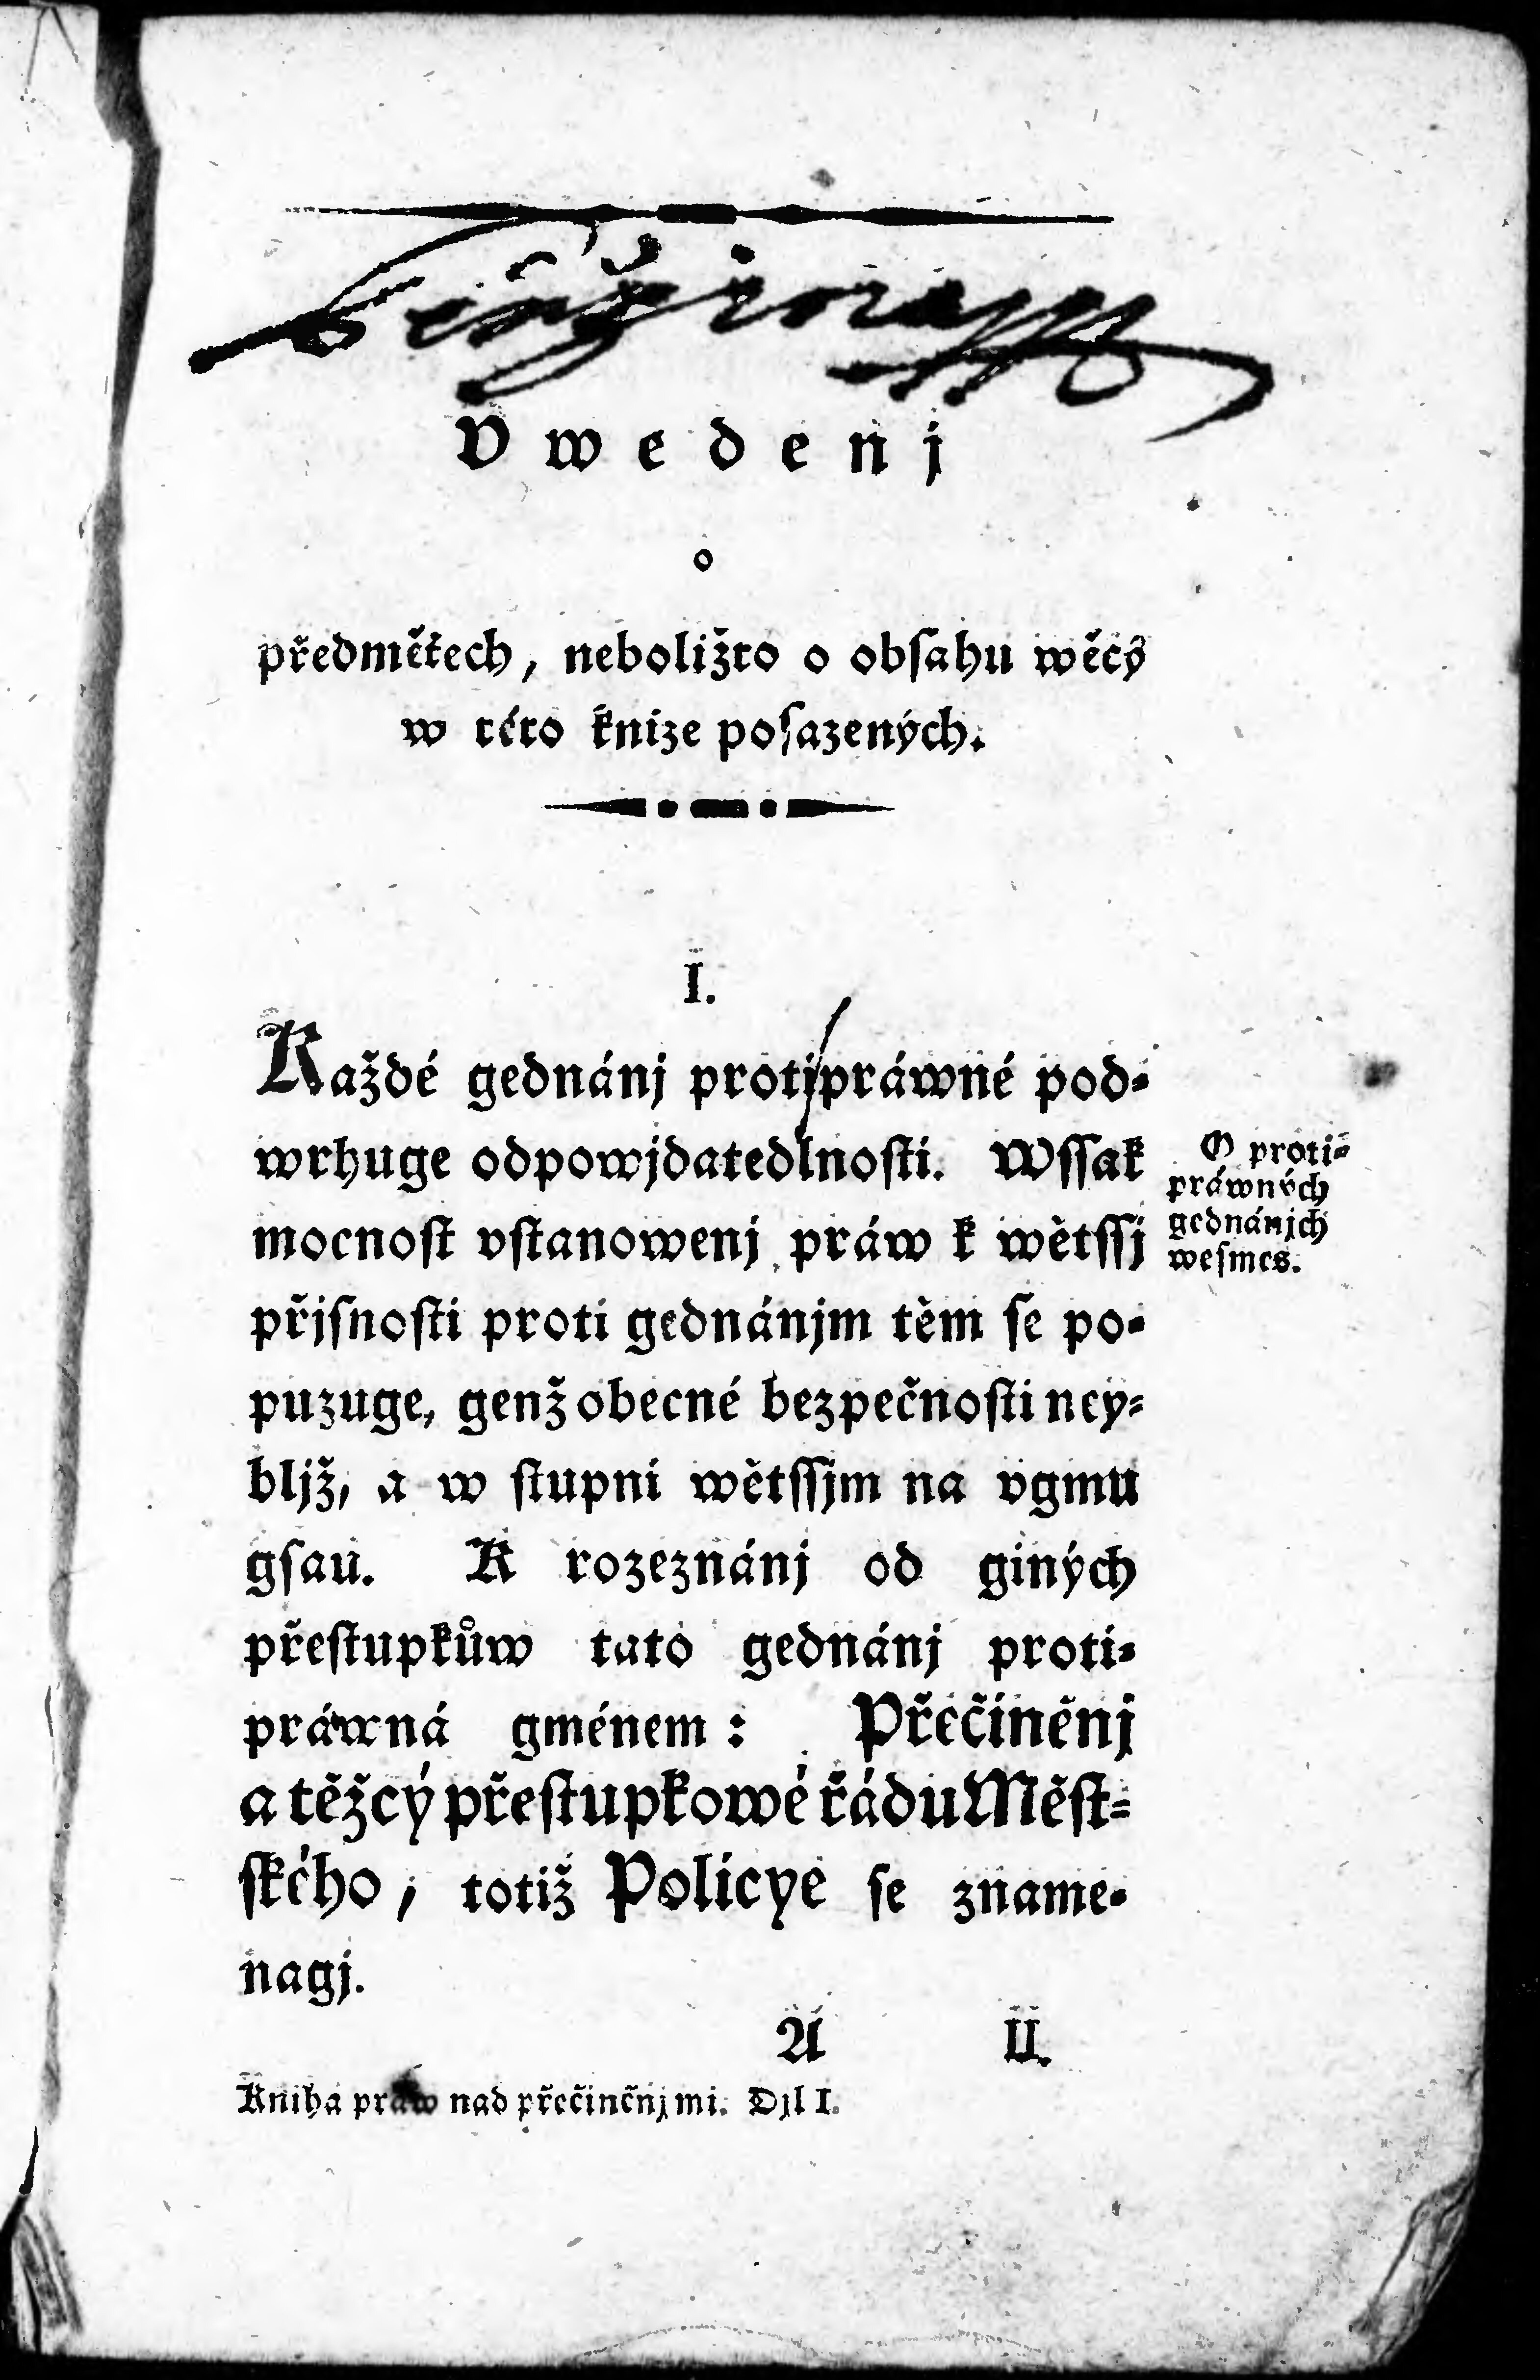 Vwedenj
o
předmětech, neboližto o obsahu wěcý
w této knize posazených.
I.
Každé gednánj protiprávné pod-
wrhuge odpowjdatedlnosti. Wssak
mocnost vstanowenj práw k wětssj
přjsnosti proti gednánjm těm se po-
puzuge, genž obecné bezpečnosti ney-
bljž, a w stupni wětssjm na vgmu
gsau. K rozeznánj od giných
přestupkůw tato gednánj proti-
práwná gménem: Přečiněnj
a těžcý přestupkowé řádu Měst-
ského, totiž Policye se zname-
nagj.
O proti-
práwných
gednánjch
wesmes.
A II.
Kniha práw nad přečiněnjmi. Djl I.